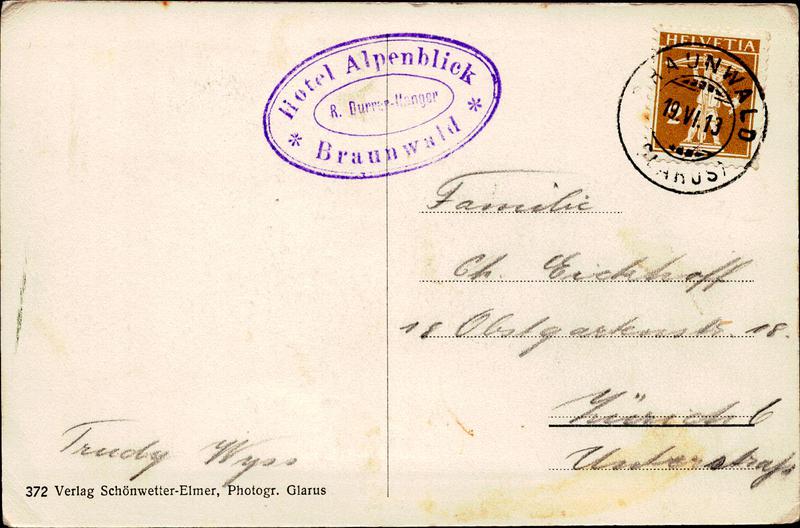 Hotel Alpenblick
R. Durrer-Hanger
Braunwald
HELVETIA
2
BRAUNWALD
19.VI.13
(GLARUS)
Familie
Ch. Eichhoff
18 Obstgartenstr. 18.
Zürich 6
Unterstraß
Trudy Wyss
372 Verlag Schönwetter-Elmer, Photogr. Glarus